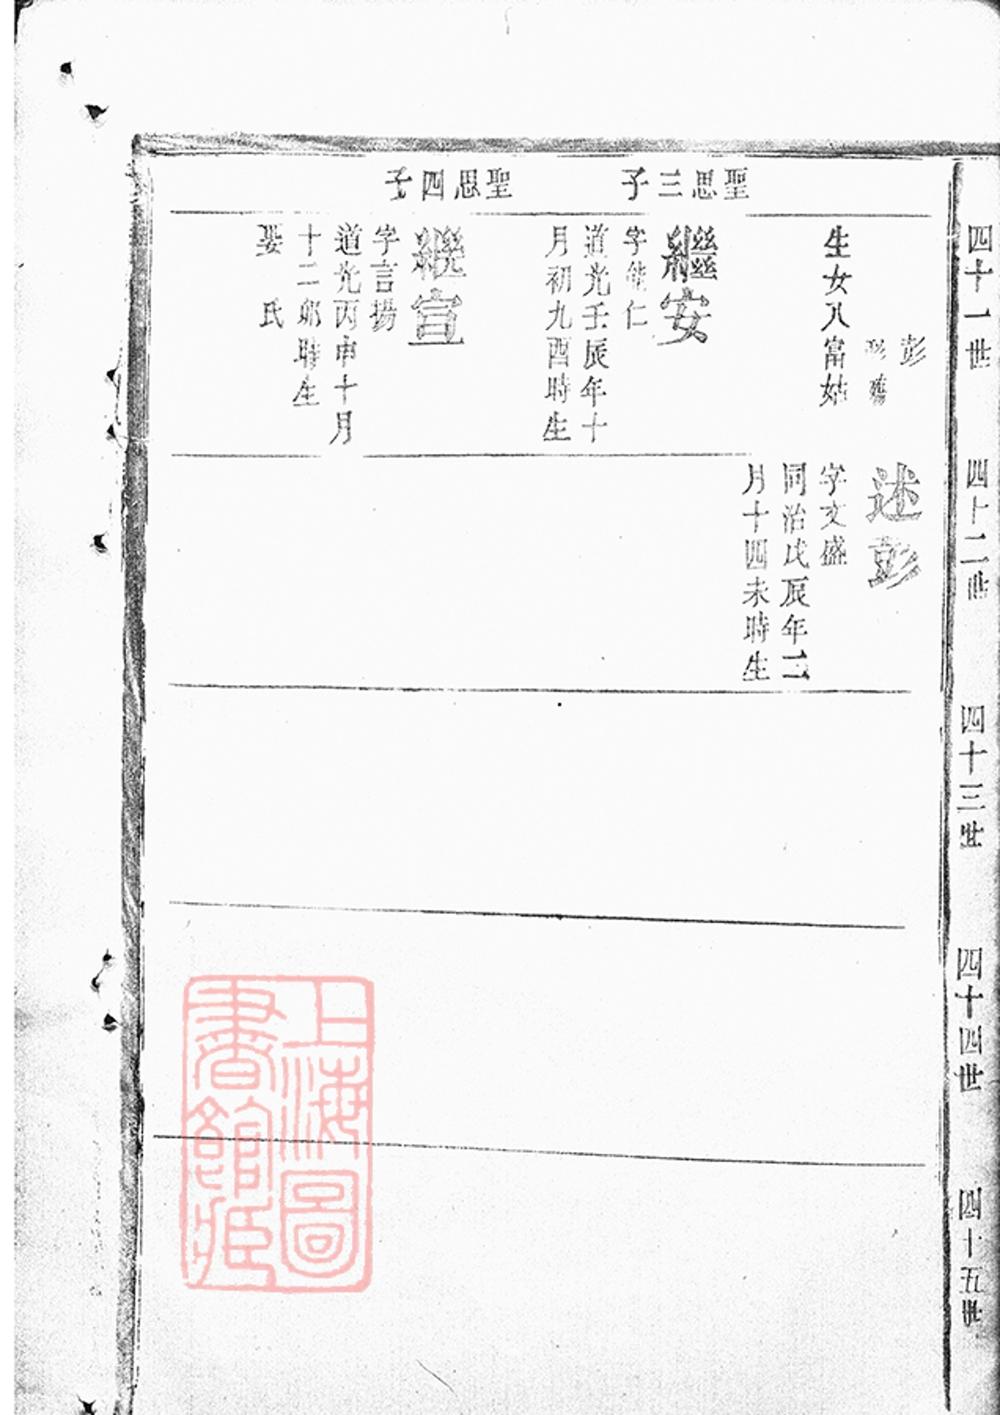 四十一世
四十二世
四十三世
四十四世
四十五世
彭
生女八富姑
述彭
字文盛
同治戊辰年二
月十四未時生
聖思三子
繼安
字能仁
道光壬辰年十
月初九酉時生
聖思四子
繼宣
字言揚
道光丙申十月
十二卯時生
娶 氏
上海圖
書館藏